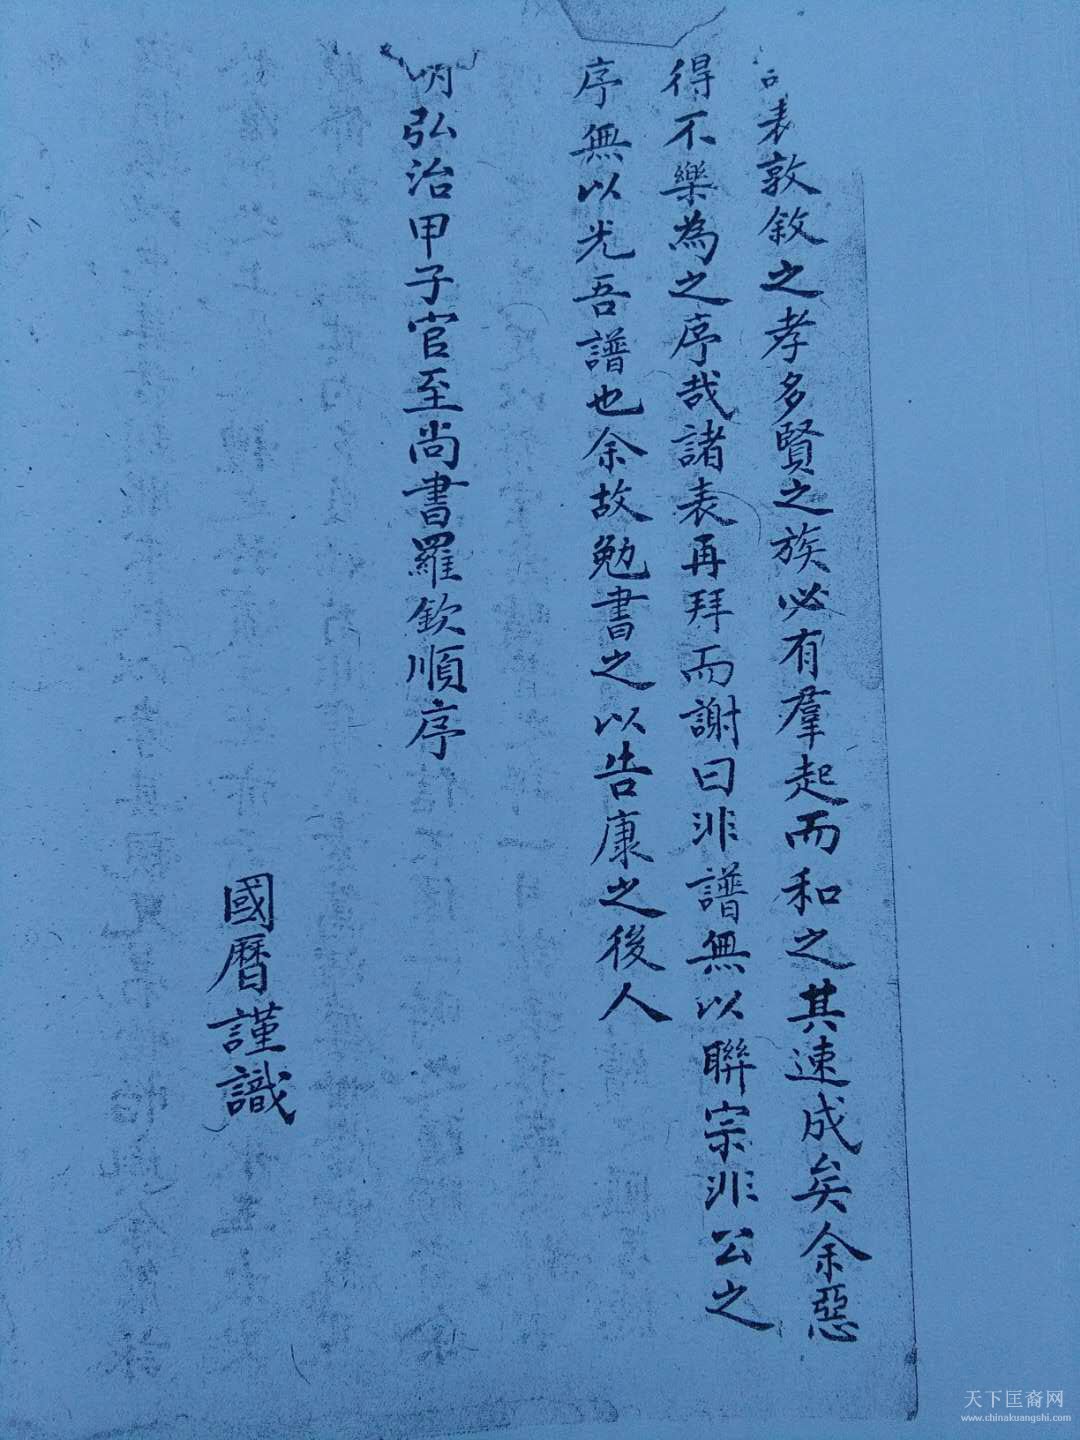 表敦敘之孝多賢之族必有羣起而和之其速成矣余惡
得不樂為之序哉諸表再拜而謝曰非譜無以聯宗非公之
序無以光吾譜也余故勉書之以告康之後人
明弘治甲子官至尚書羅欽順序
國曆謹識
天下匡裔网
www.chinakuangshi.com